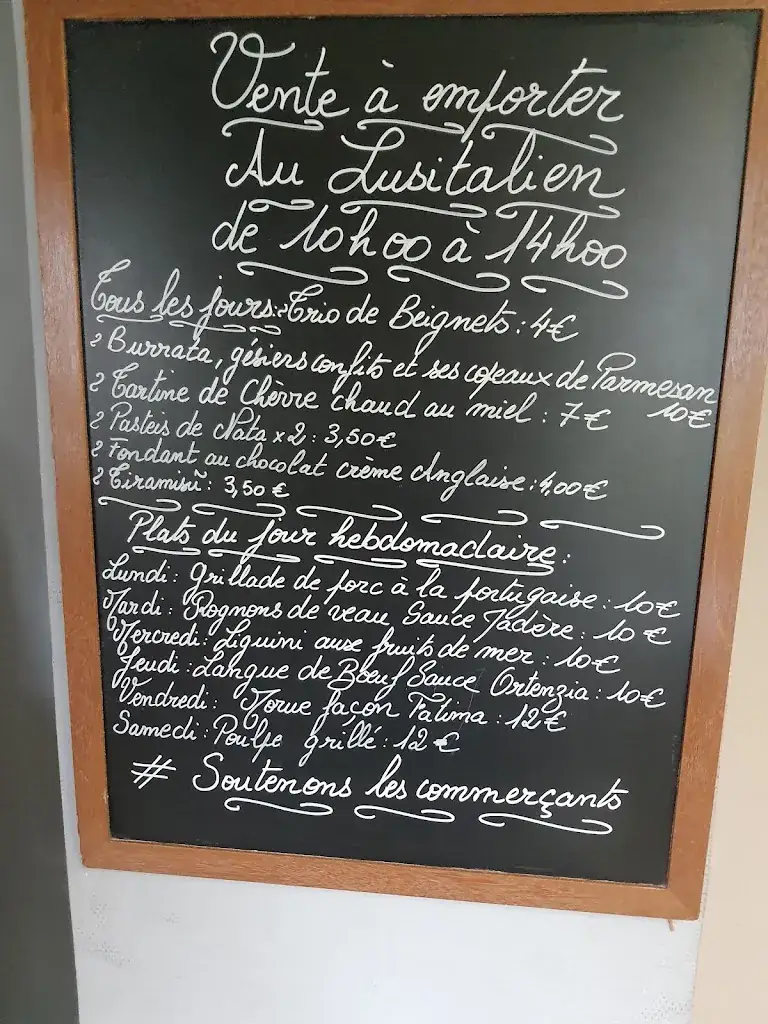 Vente à emporter
Au Lusitalien
de 10h00 à 14h00
Tous les jours: Trio de Beignets : 4€
Burrata, gésiers confits et ses copeaux de Parmesan
10€
Tartine de Chèvre chaud au miel : 7€
Pasteis de Nata x2 : 3,50€
Fondant au chocolat crème Anglaise : 4,00€
Tiramisu : 3,50€
Plats du jour hebdomadaire :
Lundi : Grillade de porc à la portugaise : 10€
Mardi : Rognons de veau Sauce Madère : 10€
Mercredi : Liguini aux fruits de mer : 10€
Jeudi : Langue de Bœuf Sauce Ortenzia : 10€
Vendredi : Morue façon Fatima : 12€
Samedi : Poulpe grillé : 12€
# Soutenons les commerçants